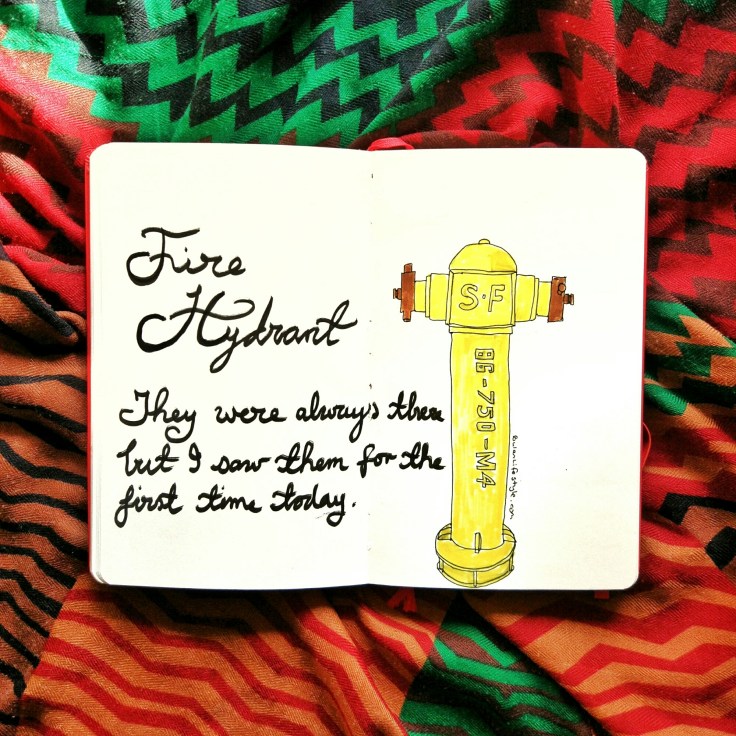 Fire
Hydrant
They were always there
but I saw them for the
first time today.
S·F
BG-750-M4